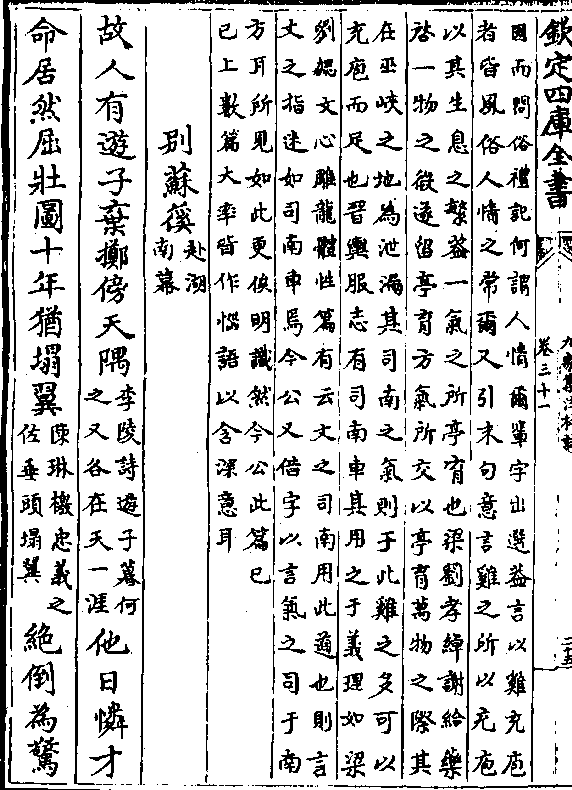 欽定四庫全書
九家集注杜詩
卷三十一
因而問俗禮記何謂人情爾輩字出選益言以雞充庖
者皆風俗人情之常爾又引末句意言雞之所以充庖
以其生息之繁益一氣之所亭育也梁劉孝綽謝給藥
啓一物之微遂留亭育方氣所交以亭育萬物之際其
在巫峽之地為泄漏其司南之氣則于此雞之多可以
充庖而足也晉輿服志有司南車其用之于義理如梁
劉勰文心雕龍體性篇有云文之司南用此適也則言
文之指迷如司南車焉今公又借字以言氣之司于南
方耳所見如此更俟明識然今公此篇已
已上數篇大率皆作惱語以含深意耳
別蘇徯赴湖南幕
故人有遊子棄擲傍天隅李陵詩遊子暮何之又各在天一涯他日憐才
命居然屈壯圖十年猶塌翼陳琳檄忠義之佐垂頭塌翼絕倒為驚